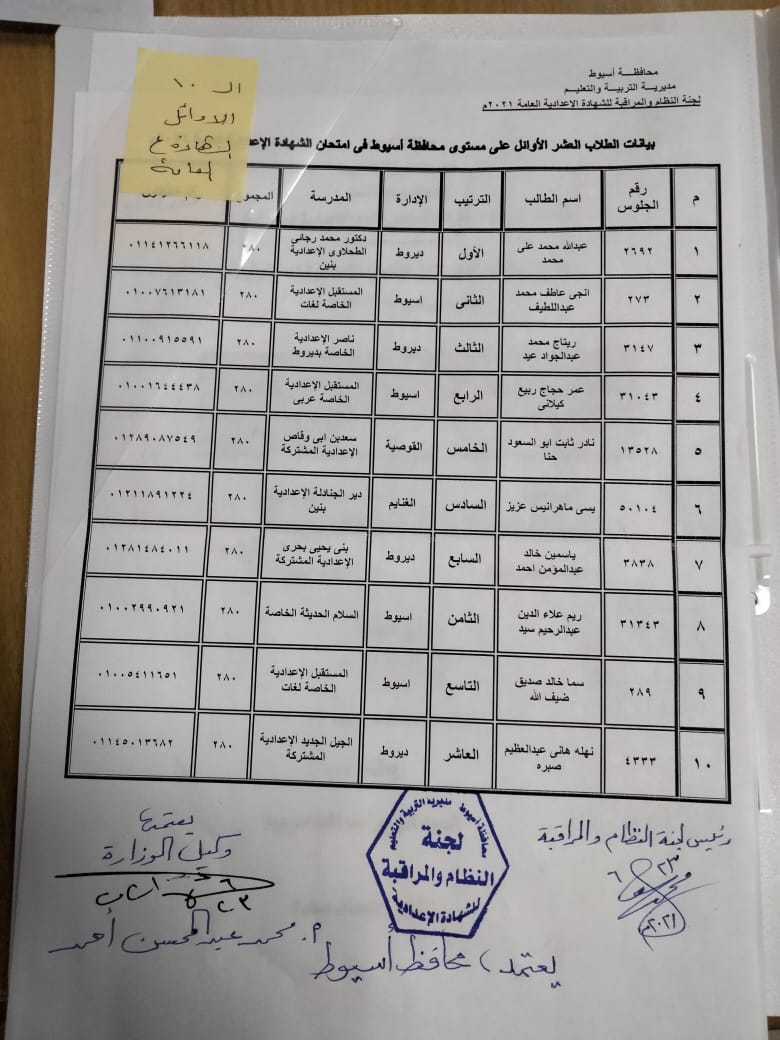 ال ١٠
الاوائل
الشهادة ع
العامة
محافظة أسيوط
مديرية التربية والتعليم
لجنة النظام والمراقبة للشهادة الإعدادية العامة ٢٠٢١م
بيانات الطلاب العشر الأوائل على مستوى محافظة أسيوط فى امتحان الشهادة
م رقم الجلوس اسم الطالب الترتيب الإدارة المدرسة المجموع
١ ٢٦٩٢ عبدالله محمد على محمد الأول ديروط دكتور محمد رجائى الطحلاوى الإعدادية بنين ٢٨٠ ٠١١٤١٢٦٦١١٨
٢ ٢٧٣ انجى عاطف محمد عبداللطيف الثانى اسيوط المستقبل الإعدادية الخاصة لغات ٢٨٠ ٠١٠٠٧٦١٣١٨١
٣ ٣١٤٧ ريتاج محمد عبدالجواد عيد الثالث ديروط ناصر الإعدادية الخاصة بديروط ٢٨٠ ٠١١٠٠٩١٥٥٩١
٤ ٣١٠٤٣ عمر حجاج ربيع كيلانى الرابع اسيوط المستقبل الإعدادية الخاصة عربى ٢٨٠ ٠١٠٠١٦٤٤٤٣٨
٥ ١٣٥٢٨ نادر ثابت ابو السعود حنا الخامس القوصية سعدبن ابى وقاص الإعدادية المشتركة ٢٨٠ ٠١٢٨٩٠٨٧٥٤٩
٦ ٥٠١٠٤ يسى ماهرانيس عزيز السادس الغنايم دير الجنادلة الإعدادية بنين ٢٨٠ ٠١٢١١٨٩١٢٢٤
٧ ٣٨٣٨ ياسمين خالد عبدالمؤمن احمد السابع ديروط بنى يحيى بحرى الإعدادية المشتركة ٢٨٠ ٠١٢٨١٤٨٤٠١١
٨ ٣١٣٤٣ ريم علاء الدين عبدالرحيم سيد الثامن اسيوط السلام الحديثة الخاصة ٢٨٠ ٠١٠٠٢٩٩٠٩٢١
٩ ٢٨٩ سما خالد صديق ضيف الله التاسع اسيوط المستقبل الإعدادية الخاصة لغات ٢٨٠ ٠١٠٠٥٤١١٦٥١
١٠ ٤٣٣٣ نهله هانى عبدالعظيم صبره العاشر ديروط الجيل الجديد الإعدادية المشتركة ٢٨٠ ٠١١٤٥٠١٣٦٨٢
رئيس لجنة النظام والمراقبة
٢٠٢١م
محافظة أسيوط مديرية التربية والتعليم
لجنة
النظام والمراقبة
للشهادة الإعدادية
يعتمدها
وكيل الوزارة
م. محمد عبدالمحسن أحمد
يعتمد، محافظ أسيوط